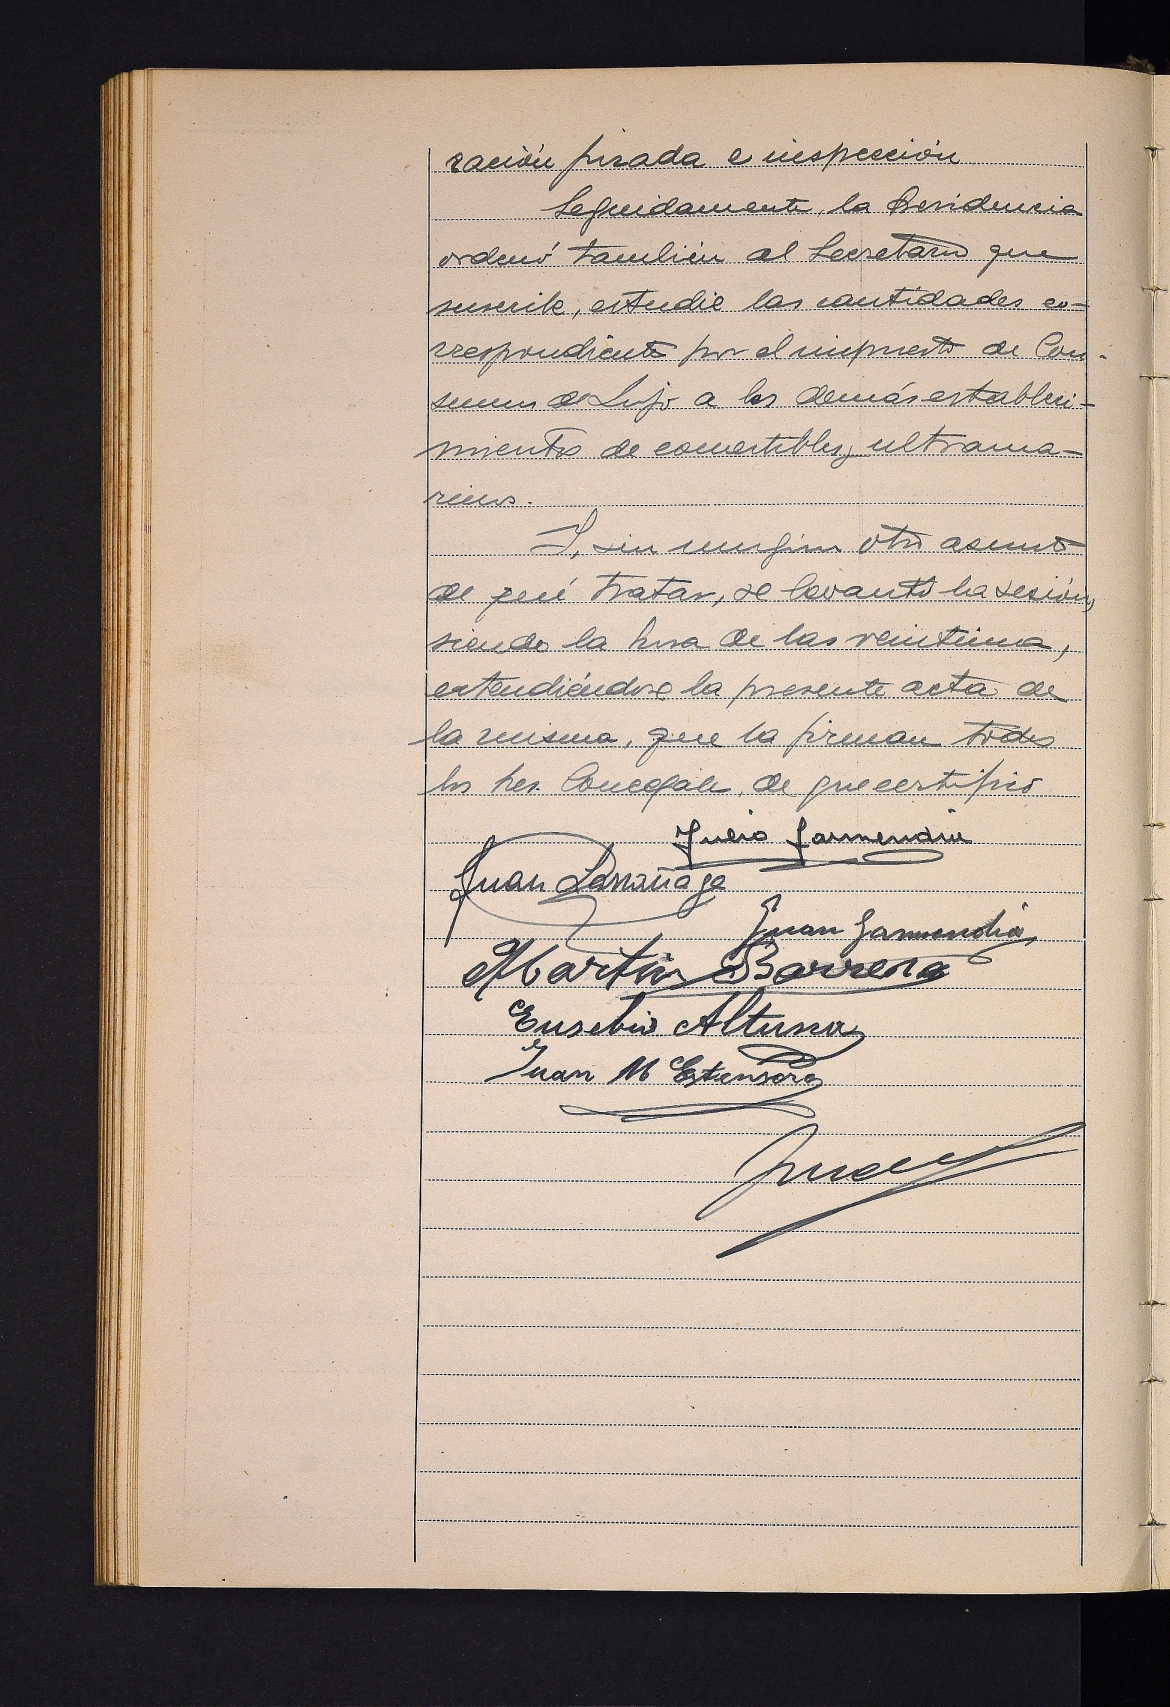 ración jurada e inspección
Seguidamente, la Presidencia
ordenó también al Secretario que
suscribe, estudie las cantidades co-
rrespondiente por el impuesto de Con-
sumos de Lujo a los demás estableci-
mientos de comestibles y ultrama-
rinos.
Y, sin ningún otro asunto
de qué tratar, se levantó la sesión,
siendo la hora de las veintiuna,
extendiéndose la presente acta de
la misma, que la firman todos
los Sres. Concejales, de que certifico
Julio Garmendia
Juan Larrañaga
Juan Garmendia
Martin Barrena
Eusebio Altuna
Juan M Estensoro